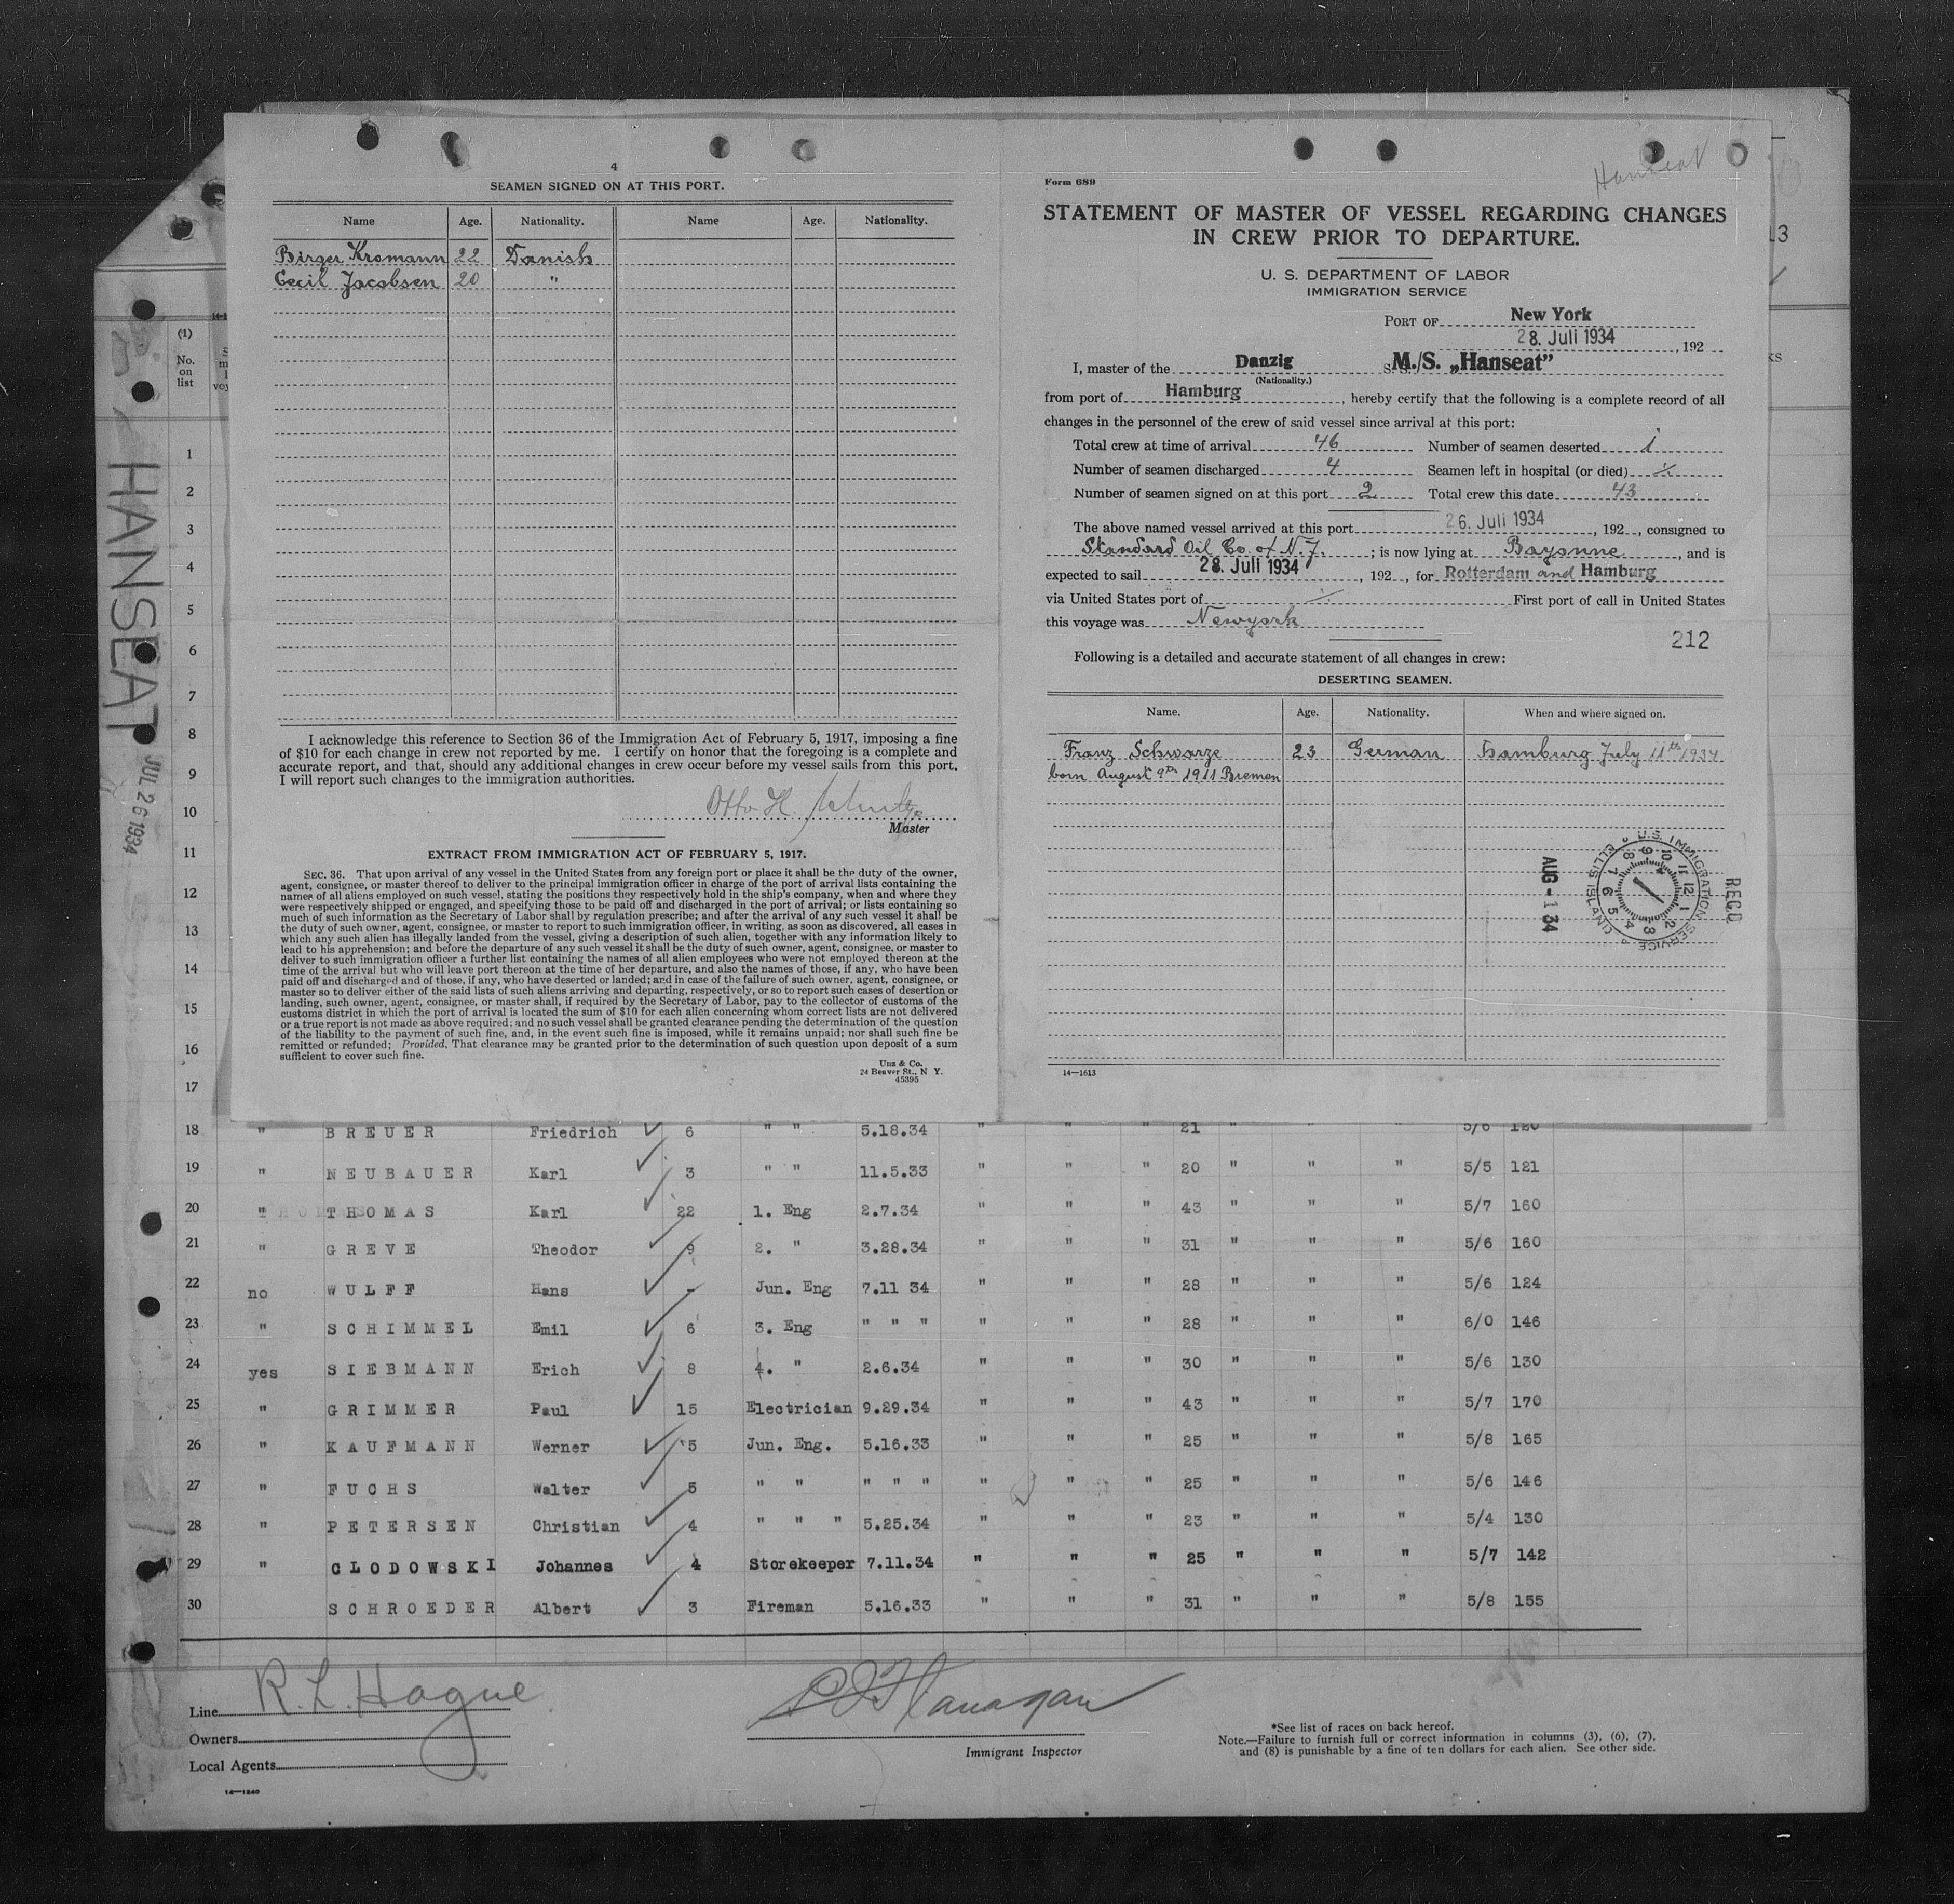 4
SEAMEN SIGNED ON AT THIS PORT.
Name Age. Nationality. Name Age. Nationality.
Birger Kromann 22 Danish
Cecil Jacobsen 20 "
I acknowledge this reference to Section 36 of the Immigration Act of February 5, 1917, imposing a fine
of $10 for each change in crew not reported by me. I certify on honor that the foregoing is a complete and
accurate report, and that, should any additional changes in crew occur before my vessel sails from this port.
I will report such changes to the immigration authorities.
Otto H
Master
EXTRACT FROM IMMIGRATION ACT OF FEBRUARY 5, 1917.
SEC. 36. That upon arrival of any vessel in the United States from any foreign port or place it shall be the duty of the owner,
agent, consignee, or master thereof to deliver to the principal immigration officer in charge of the port of arrival lists containing the
names of all aliens employed on such vessel, stating the positions they respectively hold in the ship's company, when and where they
were respectively shipped or engaged, and specifying those to be paid off and discharged in the port of arrival; or lists containing so
much of such information as the Secretary of Labor shall by regulation prescribe; and after the arrival of any such vessel it shall be
the duty of such owner, agent, consignee, or master to report to such immigration officer, in writing, as soon as discovered, all cases in
which any such alien has illegally landed from the vessel, giving a description of such alien, together with any information likely to
lead to his apprehension; and before the departure of any such vessel it shall be the duty of such owner, agent, consignee, or master to
deliver to such immigration officer a further list containing the names of all alien employees who were not employed thereon at the
time of the arrival but who will leave port thereon at the time of her departure, and also the names of those, if any, who have been
paid off and discharged and of those, if any, who have deserted or landed; and in case of the failure of such owner, agent, consignee, or
master so to deliver either of the said lists of such aliens arriving and departing, respectively, or so to report such cases of desertion or
landing, such owner, agent, consignee, or master shall, if required by the Secretary of Labor, pay to the collector of customs of the
customs district in which the port of arrival is located the sum of $10 for each alien concerning whom correct lists are not delivered
or a true report is not made as above required; and no such vessel shall be granted clearance pending the determination of the question
of the liability to the payment of such fine, and, in the event such fine is imposed, while it remains unpaid; nor shall such fine be
remitted or refunded; Provided, That clearance may be granted prior to the determination of such question upon deposit of a sum
sufficient to cover such fine.
Unz & Co.
24 Beaver St., N Y.
45395
Hanseat
Form 689
STATEMENT OF MASTER OF VESSEL REGARDING CHANGES
IN CREW PRIOR TO DEPARTURE.
U. S. DEPARTMENT OF LABOR
IMMIGRATION SERVICE
PORT OF New York
28. Juli 1934, 192
I, master of the Danzig S.S. M./S. „Hanseat”
(Nationality.)
from port of Hamburg, hereby certify that the following is a complete record of all
changes in the personnel of the crew of said vessel since arrival at this port:
Total crew at time of arrival 46 Number of seamen deserted 1
Number of seamen discharged 4 Seamen left in hospital (or died) ./.
Number of seamen signed on at this port 2 Total crew this date 43
The above named vessel arrived at this port 26. Juli 1934, 192 , consigned to
Standard Oil Co. of N.J. ; is now lying at Bayonne, and is
expected to sail 28. Juli 1934, 192 , for Rotterdam and Hamburg
via United States port of ./. First port of call in United States
this voyage was Newyork
212
Following is a detailed and accurate statement of all changes in crew:
DESERTING SEAMEN.
Name. Age. Nationality. When and where signed on.
Franz Schwarze 23 German Hamburg July 11th 1934
born August 9th 1911 Bremen
REC'D
U.S. IMMIGRATION SERVICE
ELLIS ISLAND
12 1 2 3 4 5 6 7 8 9 10 11
AUG -1 34
14—1613
13
KS
HANSEAT
JUL 26 1934
(1)
No.
on
list
1
2
3
4
5
6
7
8
9
10
11
12
13
14
15
16
17
18 " BREUER Friedrich 6 " " 5.18.34 " " " 21 " " " 5/6 120
19 " NEUBAUER Karl 3 " " 11.5.33 " " " 20 " " " 5/5 121
20 " THOMAS Karl 22 1. Eng 2.7.34 " " " 43 " " " 5/7 160
21 " GREVE Theodor 9 2. " 3.28.34 " " " 31 " " " 5/6 160
22 no WULFF Hans - Jun. Eng 7.11 34 " " " 28 " " " 5/6 124
23 " SCHIMMEL Emil 6 3. Eng " " " " " " 28 " " " 6/0 146
24 yes SIEBMANN Erich 8 4. " 2.6.34 " " " 30 " " " 5/6 130
25 " GRIMMER Paul 15 Electrician 9.29.34 " " " 43 " " " 5/7 170
26 " KAUFMANN Werner 5 Jun. Eng. 5.16.33 " " " 25 " " " 5/8 165
27 " FUCHS Walter 5 " " " " " " " " 25 " " " 5/6 146
28 " PETERSEN Christian 4 " " " 5.25.34 " " " 23 " " " 5/4 130
29 " CLODOWSKI Johannes 4 Storekeeper 7.11.34 " " " 25 " " " 5/7 142
30 SCHROEDER Albert 3 Fireman 5.16.33 " " " 31 " " " 5/8 155
Line R. L. Hague
Owners
Local Agents
14—1240
Flanagan
Immigrant Inspector
*See list of races on back hereof.
Note.—Failure to furnish full or correct information in columns (3), (6), (7),
and (8) is punishable by a fine of ten dollars for each alien. See other side.